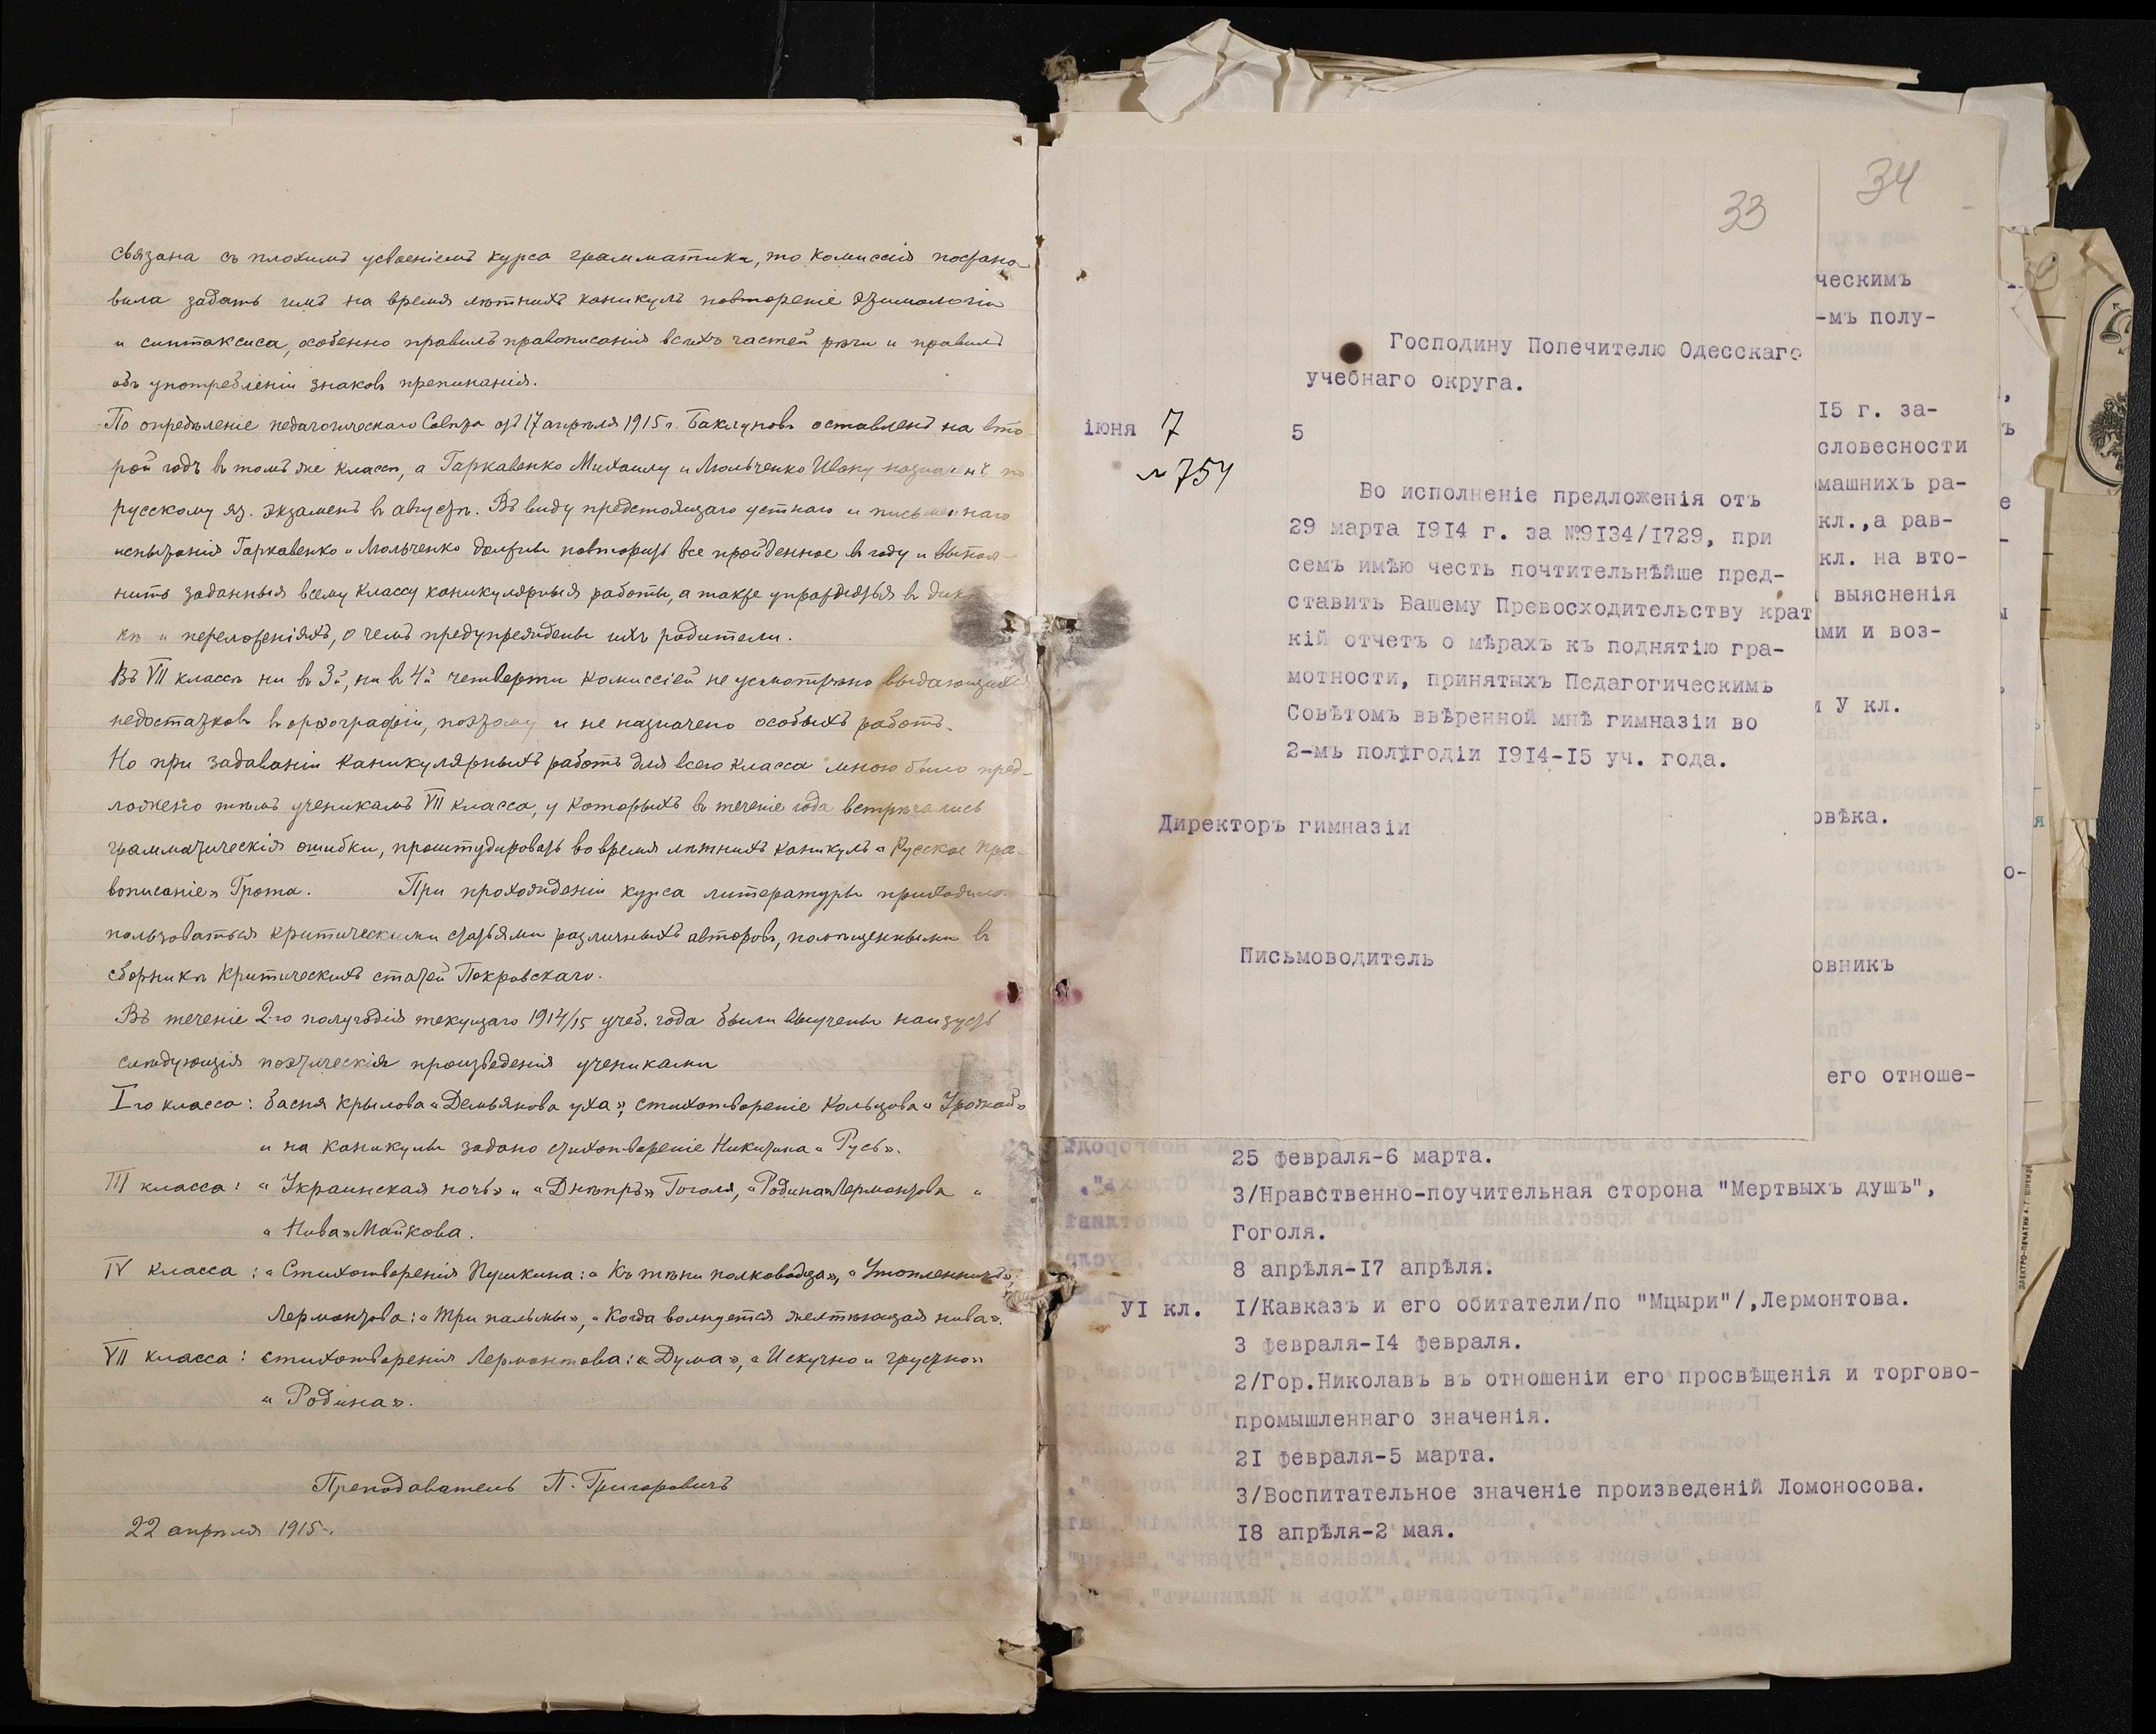 связана съ плохимъ усвоеніемъ курса грамматики, то комиссія постано-
вила задать имъ на время лѣтнихъ каникулъ повтореніе этимологіи
и синтаксиса, особенно правилъ правописанія всѣхъ частей рѣчи и правилъ
объ употребленіи знаковъ препинанія.
По опредѣленіе педагогическаго Совѣта отъ 17 апрѣля 1915 г. Баклуновъ оставленъ на вто-
рой годъ въ томъ же классѣ, а Гаркавенко Михаилу и Мольченко Ивану назначенъ по
русскому яз. экзаменъ въ августѣ. Въ виду предстоящаго устнаго и письменнаго
испытанія Гаркавенко и Мольченко должны повторить все пройденное въ году и выпол-
нить заданныя всему классу каникулярныя работы, а также упражняться въ дик
кѣ и переложеніяхъ, о чемъ предупреждены ихъ родители.
Въ VII классѣ ни въ 3й, ни въ 4й четверти комиссіей не усмотрѣно выдающихся
недостатковъ въ орѳографіи, поэтому и не назначено особыхъ работъ.
Но при задаваніи каникулярныхъ работъ для всего класса мною было пред-
ложено тѣмъ ученикамъ VII класса, у которыхъ въ теченіе года встрѣчались
грамматическія ошибки, проштудировать во время лѣтнихъ каникулъ «Русское пра-
вописаніе» Грота. При прохожденіи курса литературы приходилось
пользоваться критическими статьями различныхъ авторовъ, помѣщенными въ
сборникѣ критическихъ статей Покровскаго.
Въ теченіе 2-го полугодія текущаго 1914/15 учеб. года были выучены наизусть
слѣдующія поэтическія произведенія учениками
I го класса: басня Крылова «Демьянова уха», стихотвореніе Кольцова «Урожай»
и на каникулы задано стихотвореніе Никитина «Русь».
III класса: «Украинская ночь» и «Днѣпръ» Гоголя, «Родина» Лермонтова и
«Нива» Майкова.
IV класса: «Стихотворенія Пушкина: «Къ тѣни полководца», «Утопленникъ»,
Лермонтова: «Три пальмы», «Когда волнуется желтѣющая нива».
VII класса: стихотворенія Лермонтова: «Дума», «И скучно и грустно»
«Родина».
Преподаватель П. Григоровичъ
22 апрѣля 1915 г.
34
33
Господину Попечителю Одесскаго
учебнаго округа.
іюня 7 5
№ 754
Во исполненіе предложенія отъ
29 марта 1914 г. за №9134/1729, при
семъ имѣю честь почтительнѣйше пред-
ставить Вашему Превосходительству крат
кій отчетъ о мѣрахъ къ поднятію гра-
мотности, принятыхъ Педагогическимъ
Совѣтомъ ввѣренной мнѣ гимназіи во
2-мъ полугодіи 1914-15 уч. года.
Директоръ гимназіи
Письмоводитель
ческимъ
-мъ полу-
15 г. за-
словесности
омашнихъ ра-
кл.,а рав-
кл. на вто-
выясненія
ами и воз-
и У кл.
овѣка.
овникъ
его отноше-
25 февраля-6 марта.
3/Нравственно-поучительная сторона "Мертвыхъ душъ",
Гоголя.
8 апрѣля-17 апрѣля.
УІ кл. І/Кавказъ и его обитатели/по "Мцыри"/,Лермонтова.
3 февраля-14 февраля.
2/Гор.Николавъ въ отношеніи его просвѣщенія и торгово-
промышленнаго значенія.
21 февраля-5 марта.
3/Воспитательное значеніе произведеній Ломоносова.
18 апрѣля-2 мая.